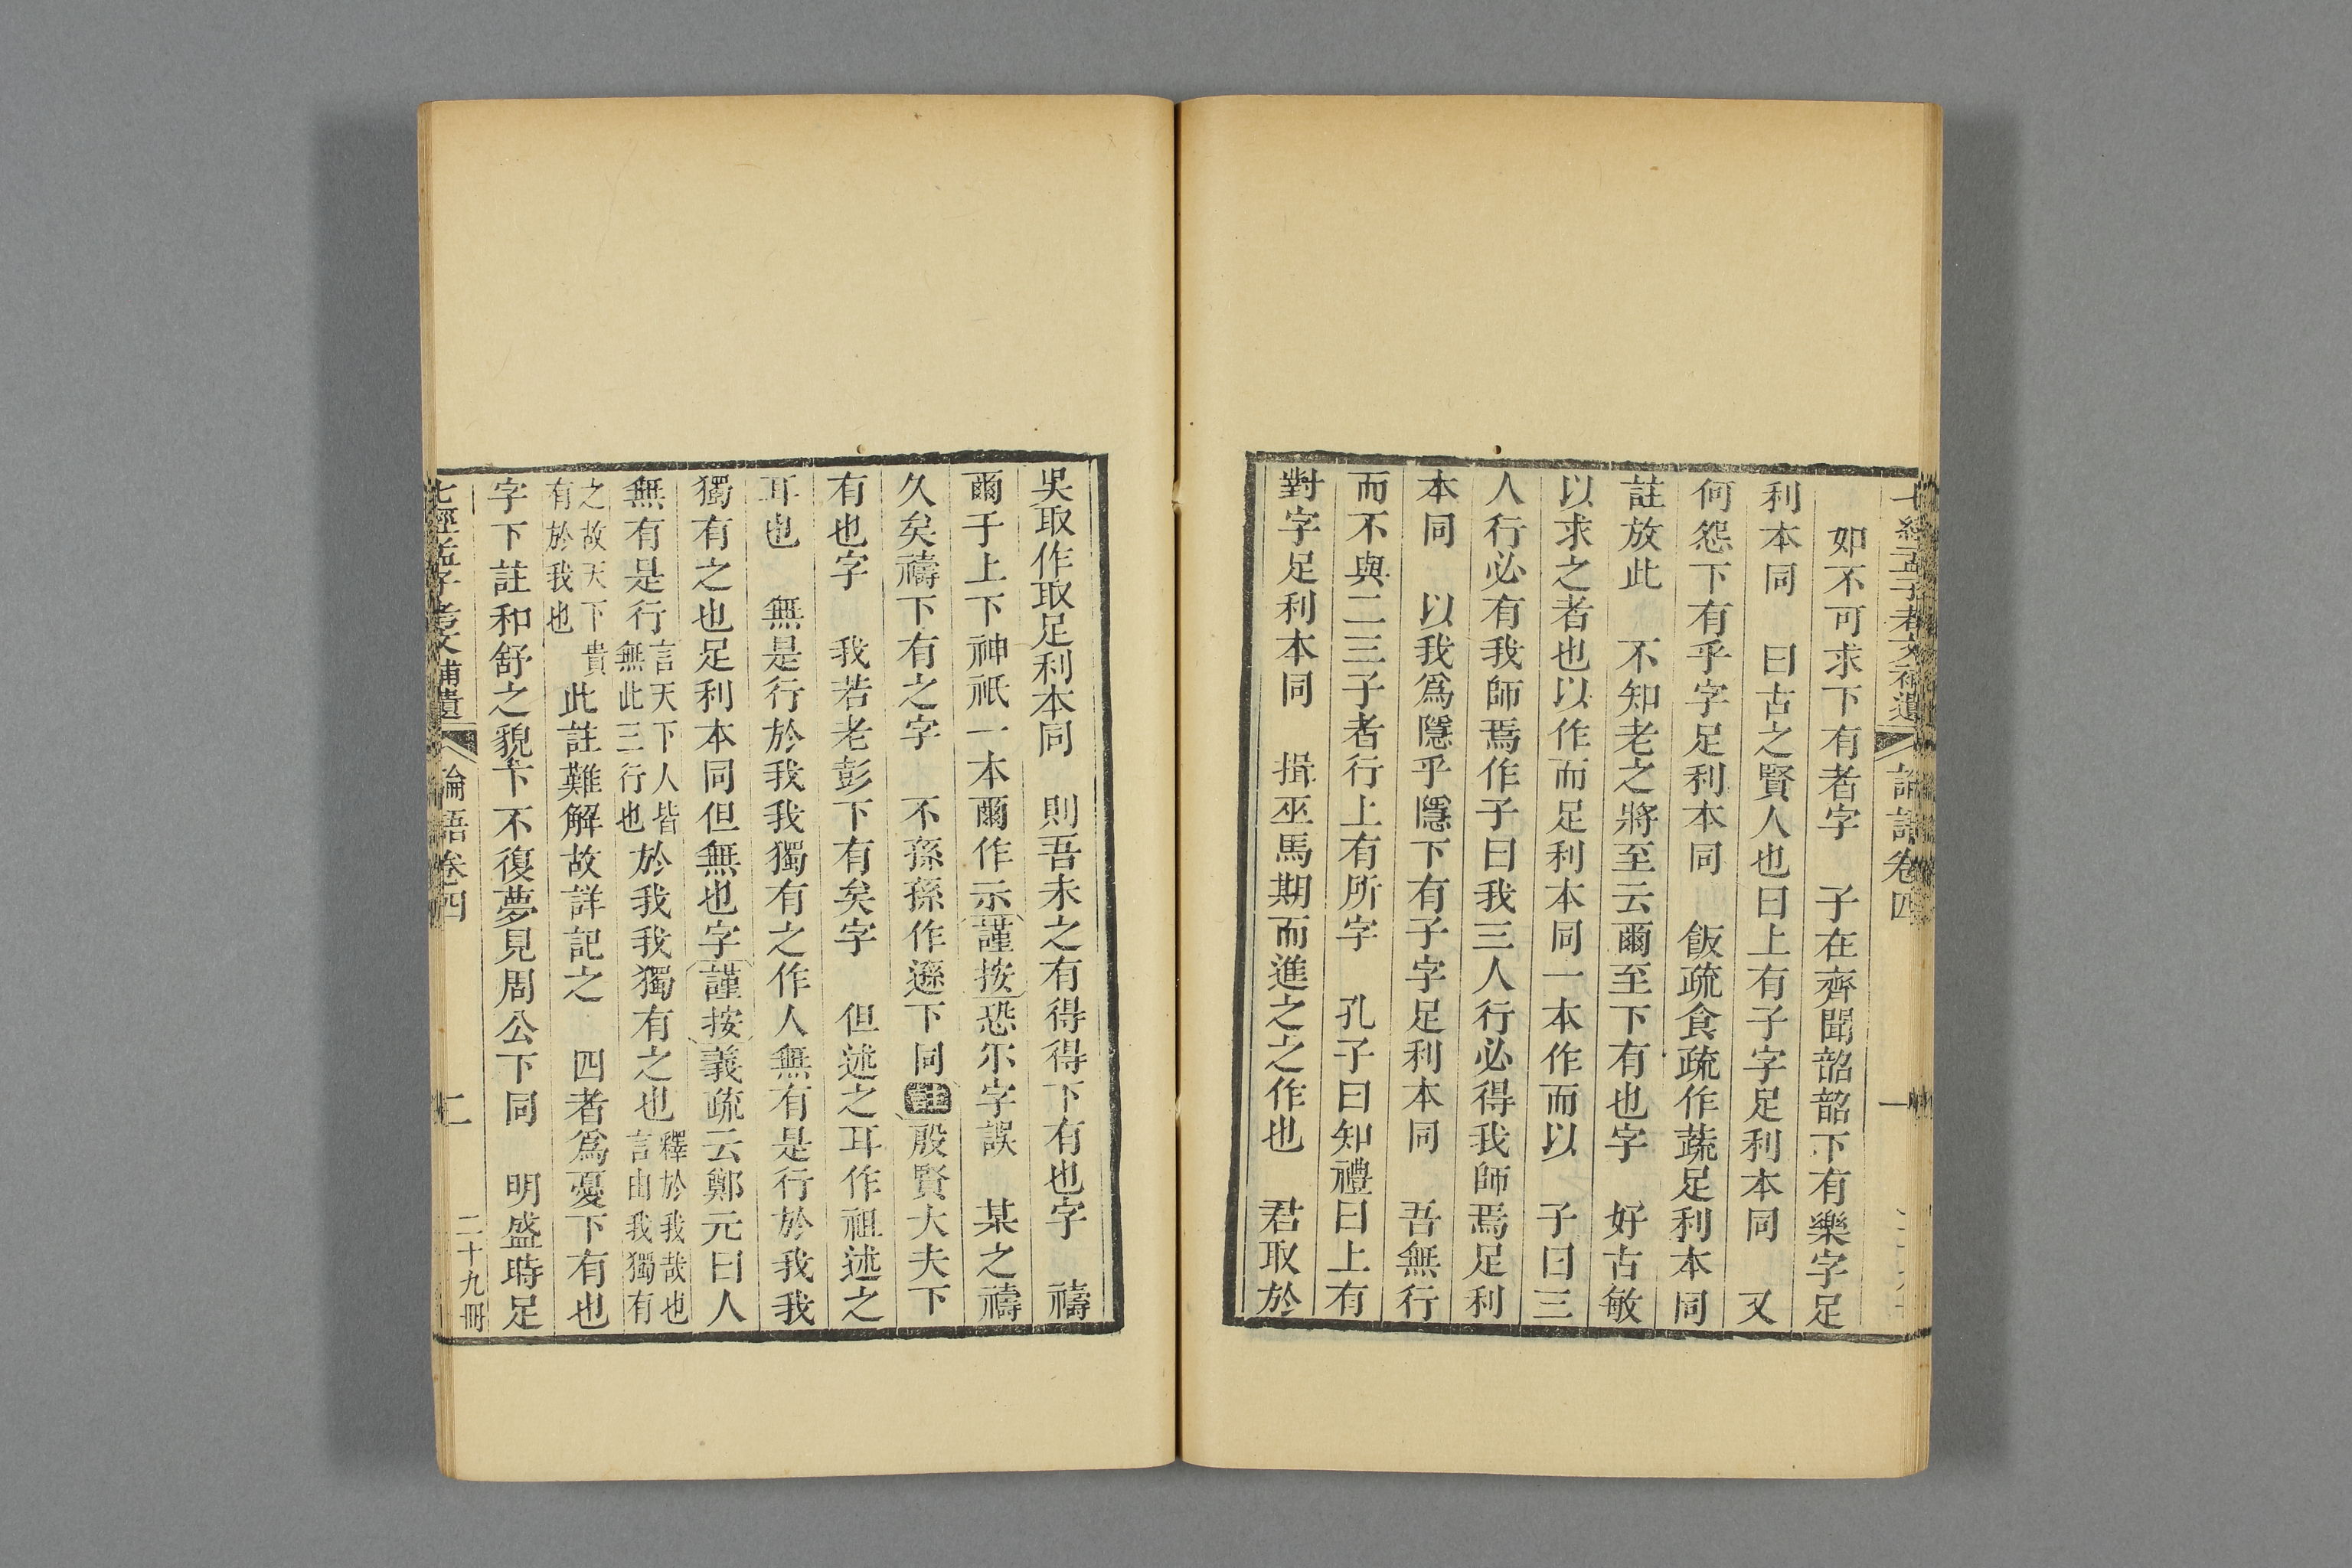 如不可求下有者字　子在齊聞韶韶下有樂字足
利本同　曰古之賢人也曰上有子字足利本同　又
何怨下有乎字足利本同　飯疏食疏作蔬足利本同
註放此　不知老之將至云爾至下有也字　好古敏
以求之者也以作而足利本同一本作而以　子曰三
人行必有我師焉作子曰我三人行必得我師焉足利
本同　以我爲隱乎隱下有子字足利本同　吾無行
而不與二三子者行上有所字　孔子曰知禮曰上有
對字足利本同　揖巫馬期而進之之作也　君取於
吳取作取足利本同　則吾未之有得得下有也字　禱
爾于上下神祇一本爾作示謹按恐尓字誤　某之禱
久矣禱下有之字　不孫孫作遜下同註殷賢大夫下
有也字　我若老彭下有矣字　但述之耳作祖述之
耳也　無是行於我我獨有之作人無有是行於我我
獨有之也足利本同但無也字謹按義疏云鄭元曰人
無有是行言天下人皆無此三行也於我我獨有之也釋於我哉也言由我獨有
之故天下貴有於我也此註難解故詳記之　四者爲憂下有也
字下註和舒之貌下不復夢見周公下同　明盛時足
七經孟子考文補遺　論語卷四　二　二十九冊